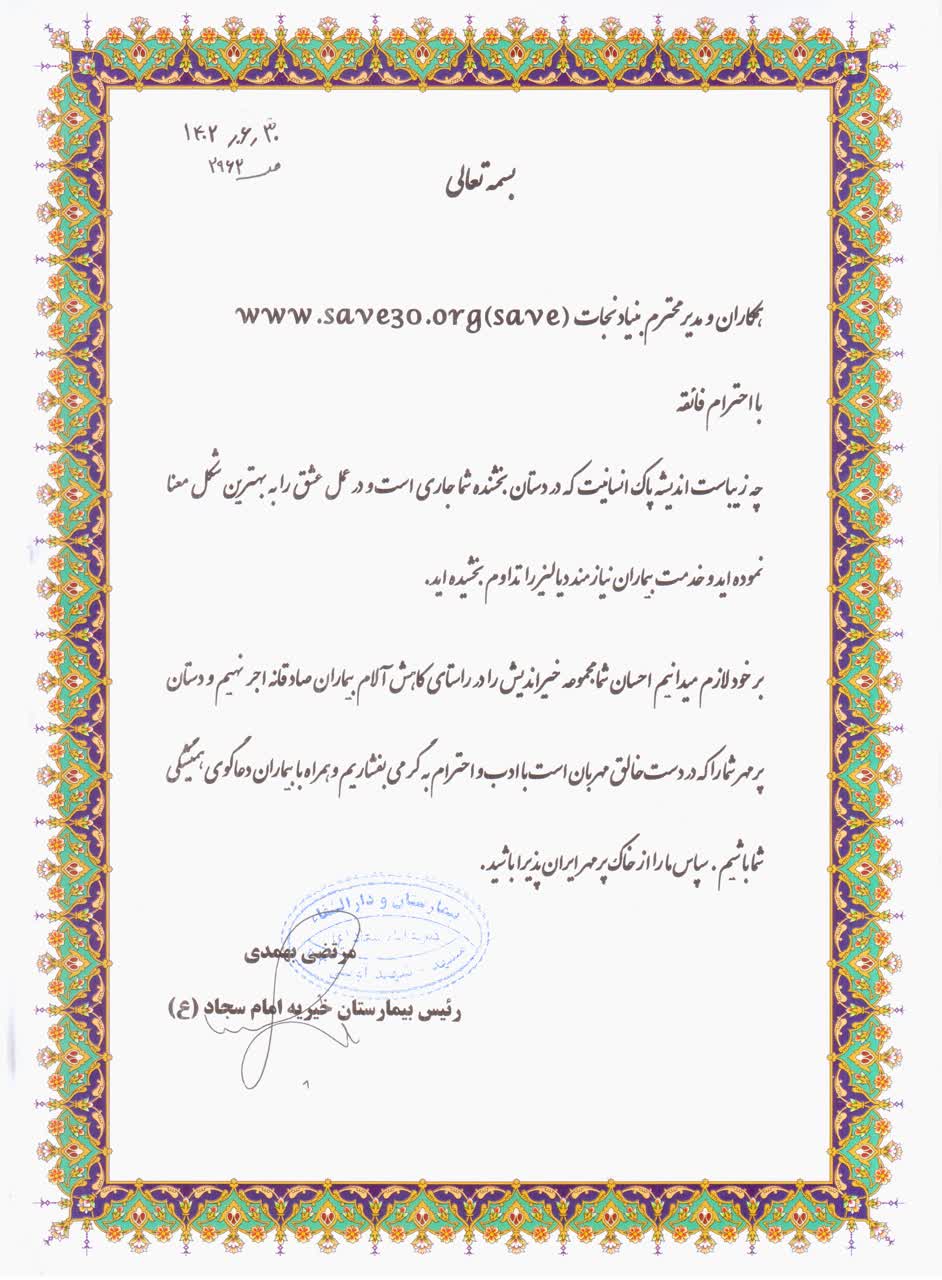 ۱۴۰۲٫۰۶٫۳۰
ص ۲۹۶۲
بسمه تعالی
همکاران و مدیر محترم بنیاد نجات (save)www.save30.org
با احترام فائقه
چه زیباست اندیشه پاک انسانیت که در دستان بخشنده شما جاری است و در عمل عشق را به بهترین شکل معنا
نموده اید و خدمت بیماران نیازمند دیالیز را تداوم بخشیده اید.
بر خود لازم میدانیم احسان شما مجموعه خیراندیش را در راستای کاهش آلام بیماران صادقانه اجر نهیم و دستان
پر مهر شما را که در دست خالق مهربان است با ادب و احترام به گرمی بفشاریم و همراه با بیماران دعاگوی همیشگی
شما باشیم . سپاس ما را از خاک پر مهر ایران پذیرا باشید .
بیمارستان و دار الشفاء
مرتضی بهمدی
رئیس بیمارستان خیریه امام سجاد (ع)